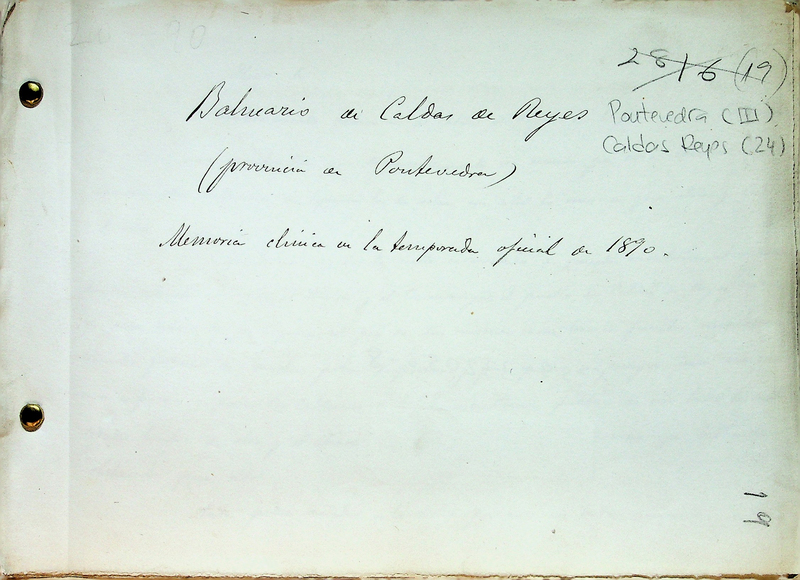 2816 (19)
Balneario de Caldas de Reyes
Pontevedra (III)
Caldas Reyes (24)
(provincia de Pontevedra)
Memoria clinica de la temporada oficial de 1890.
19